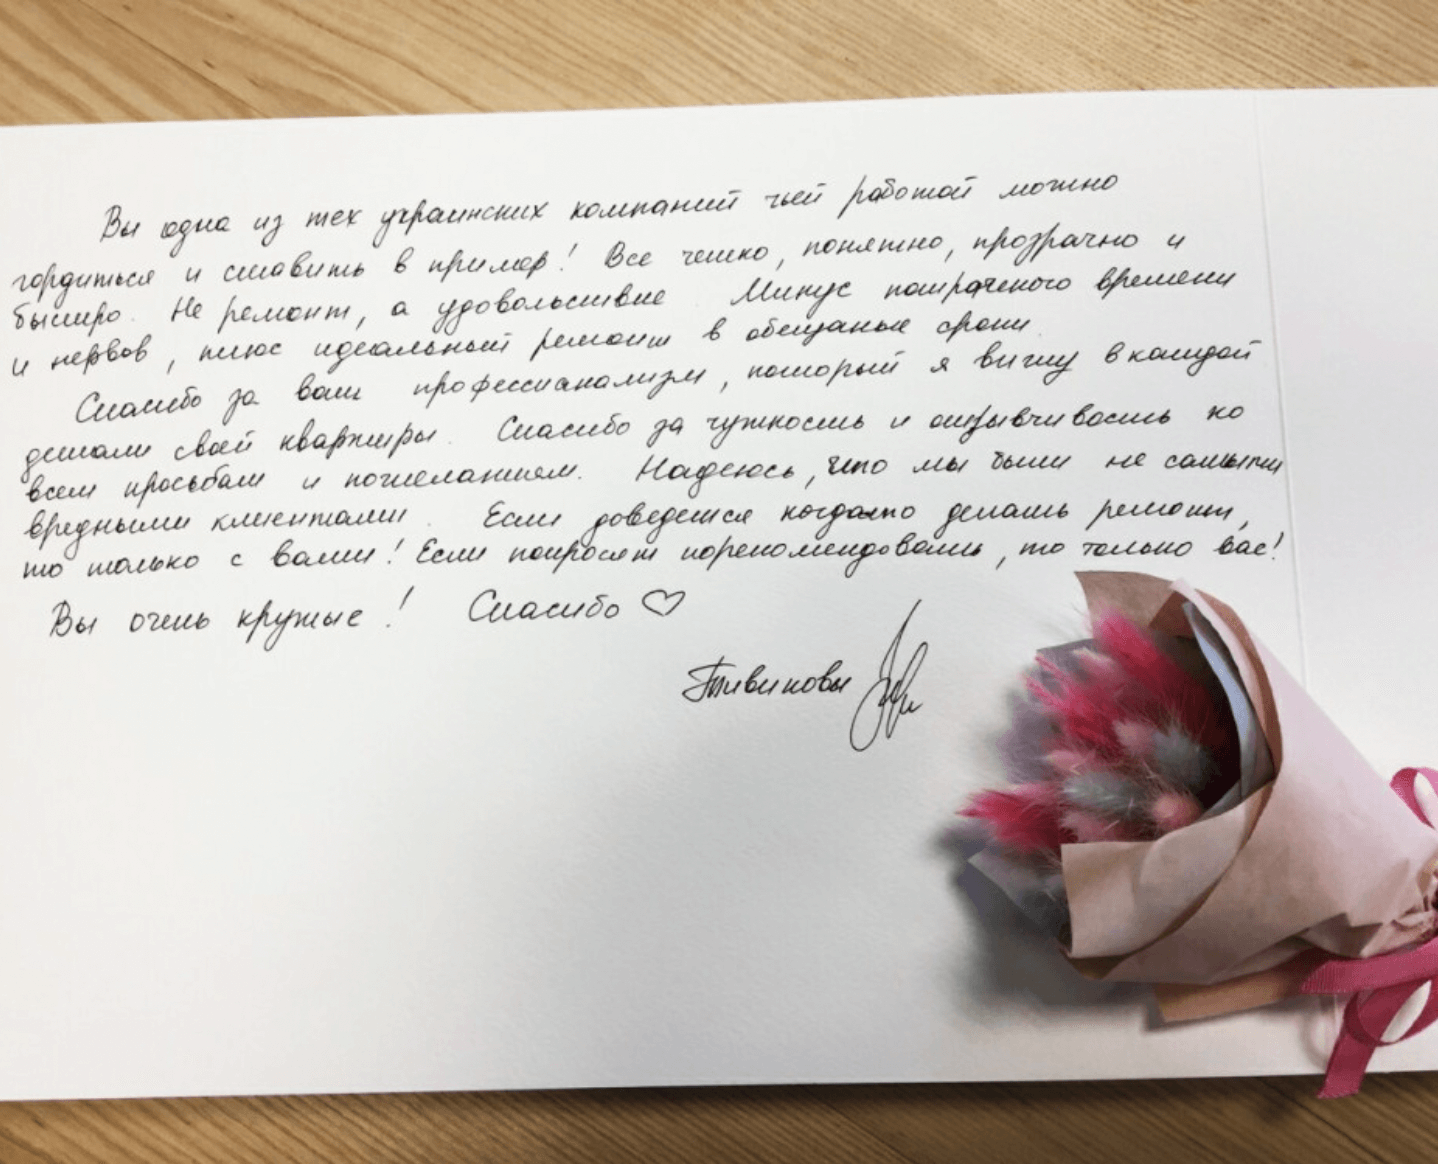 Вы одна из тех украинских компаний чьей работой можно
гордиться и ставить в пример! Все четко, понятно, прозрачно и
быстро. Не ремонт, а удовольствие. Минус потраченого времени
и нервов, плюс идеальный ремонт в обещаные сроки.
Спасибо за ваш профессианализм, который я вижу в каждой
детали своей квартиры. Спасибо за чуткость и отзывчивость ко
всем просьбам и пожеланием. Надеюсь, что мы были не самыми
вредными клиентами. Если доведется когдато делать ремонт,
то только с вами! Если попросят порекомендовать, то только вас!
Вы очень крутые! Спасибо ♡